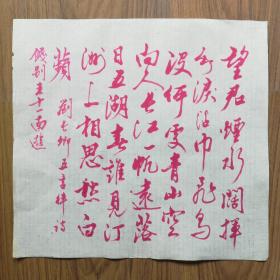 望君煙水闊揮
手淚沾巾飛鳥
没何處青山空
向人長江一帆遠落
日五湖春誰見汀
洲上相思愁白
蘋 劉長卿五言律詩
餞別王十一南遊